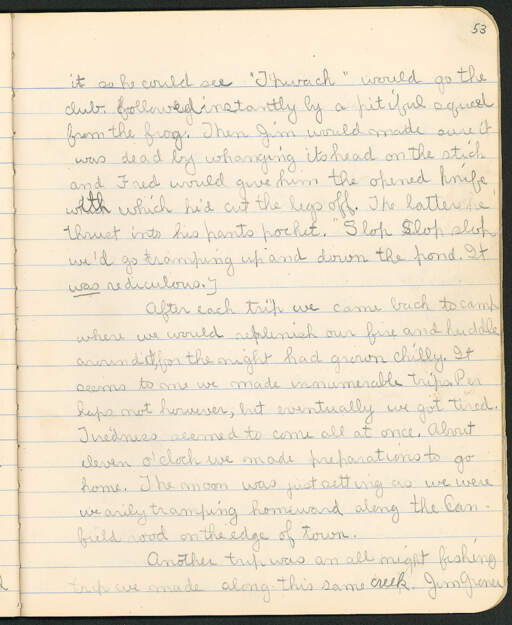 53
it so he could see "Thwach" would go the
club. followed instantly by a pitiful squeel
from the frog. Then Jim would made sure it
was dead by whanging its head on the stick
and Fred would give him the opened knife
with which he'd cut the legs off. The latter he
thrust into his pants pocket. "Slop Slop slop
we'd go tramping up and down the pond. It
was rediculous.]
After each trip we came back to camp
where we would replenish our fire and huddle
around it, for the night had grown chilly. It
seems to me we made innumerable trips. Per
haps not however, but eventually we got tired.
Tiredness seemed to come all at once. About
eleven o'clock we made preparations to go
home. The moon was just setting as we were
wearily tramping homeward along the Can-
field road on the edge of town.
Another trip was an all night fishing
trip we made along this same creek. Jim